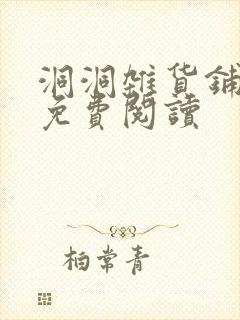 洞洞雜貨鋪
免費閱讀
柏常青